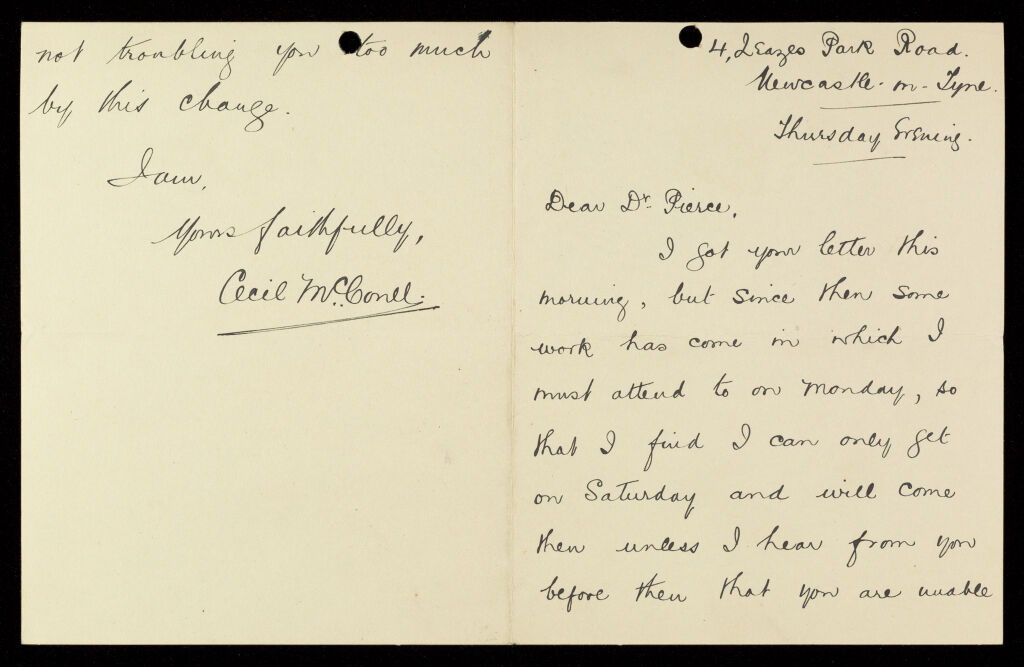 4, Leazes Park Road.
Newcastle-on-Tyne.
Thursday Evening.
Dear Dr. Pierce,
I got your letter this
morning, but since then some
work has come in which I
must attend to on Monday, so
that I find I can only get
on Saturday and will come
then unless I hear from you
before then that you are unable
not troubling you too much
by this change.
I am,
Yours faithfully,
Cecil McConel.